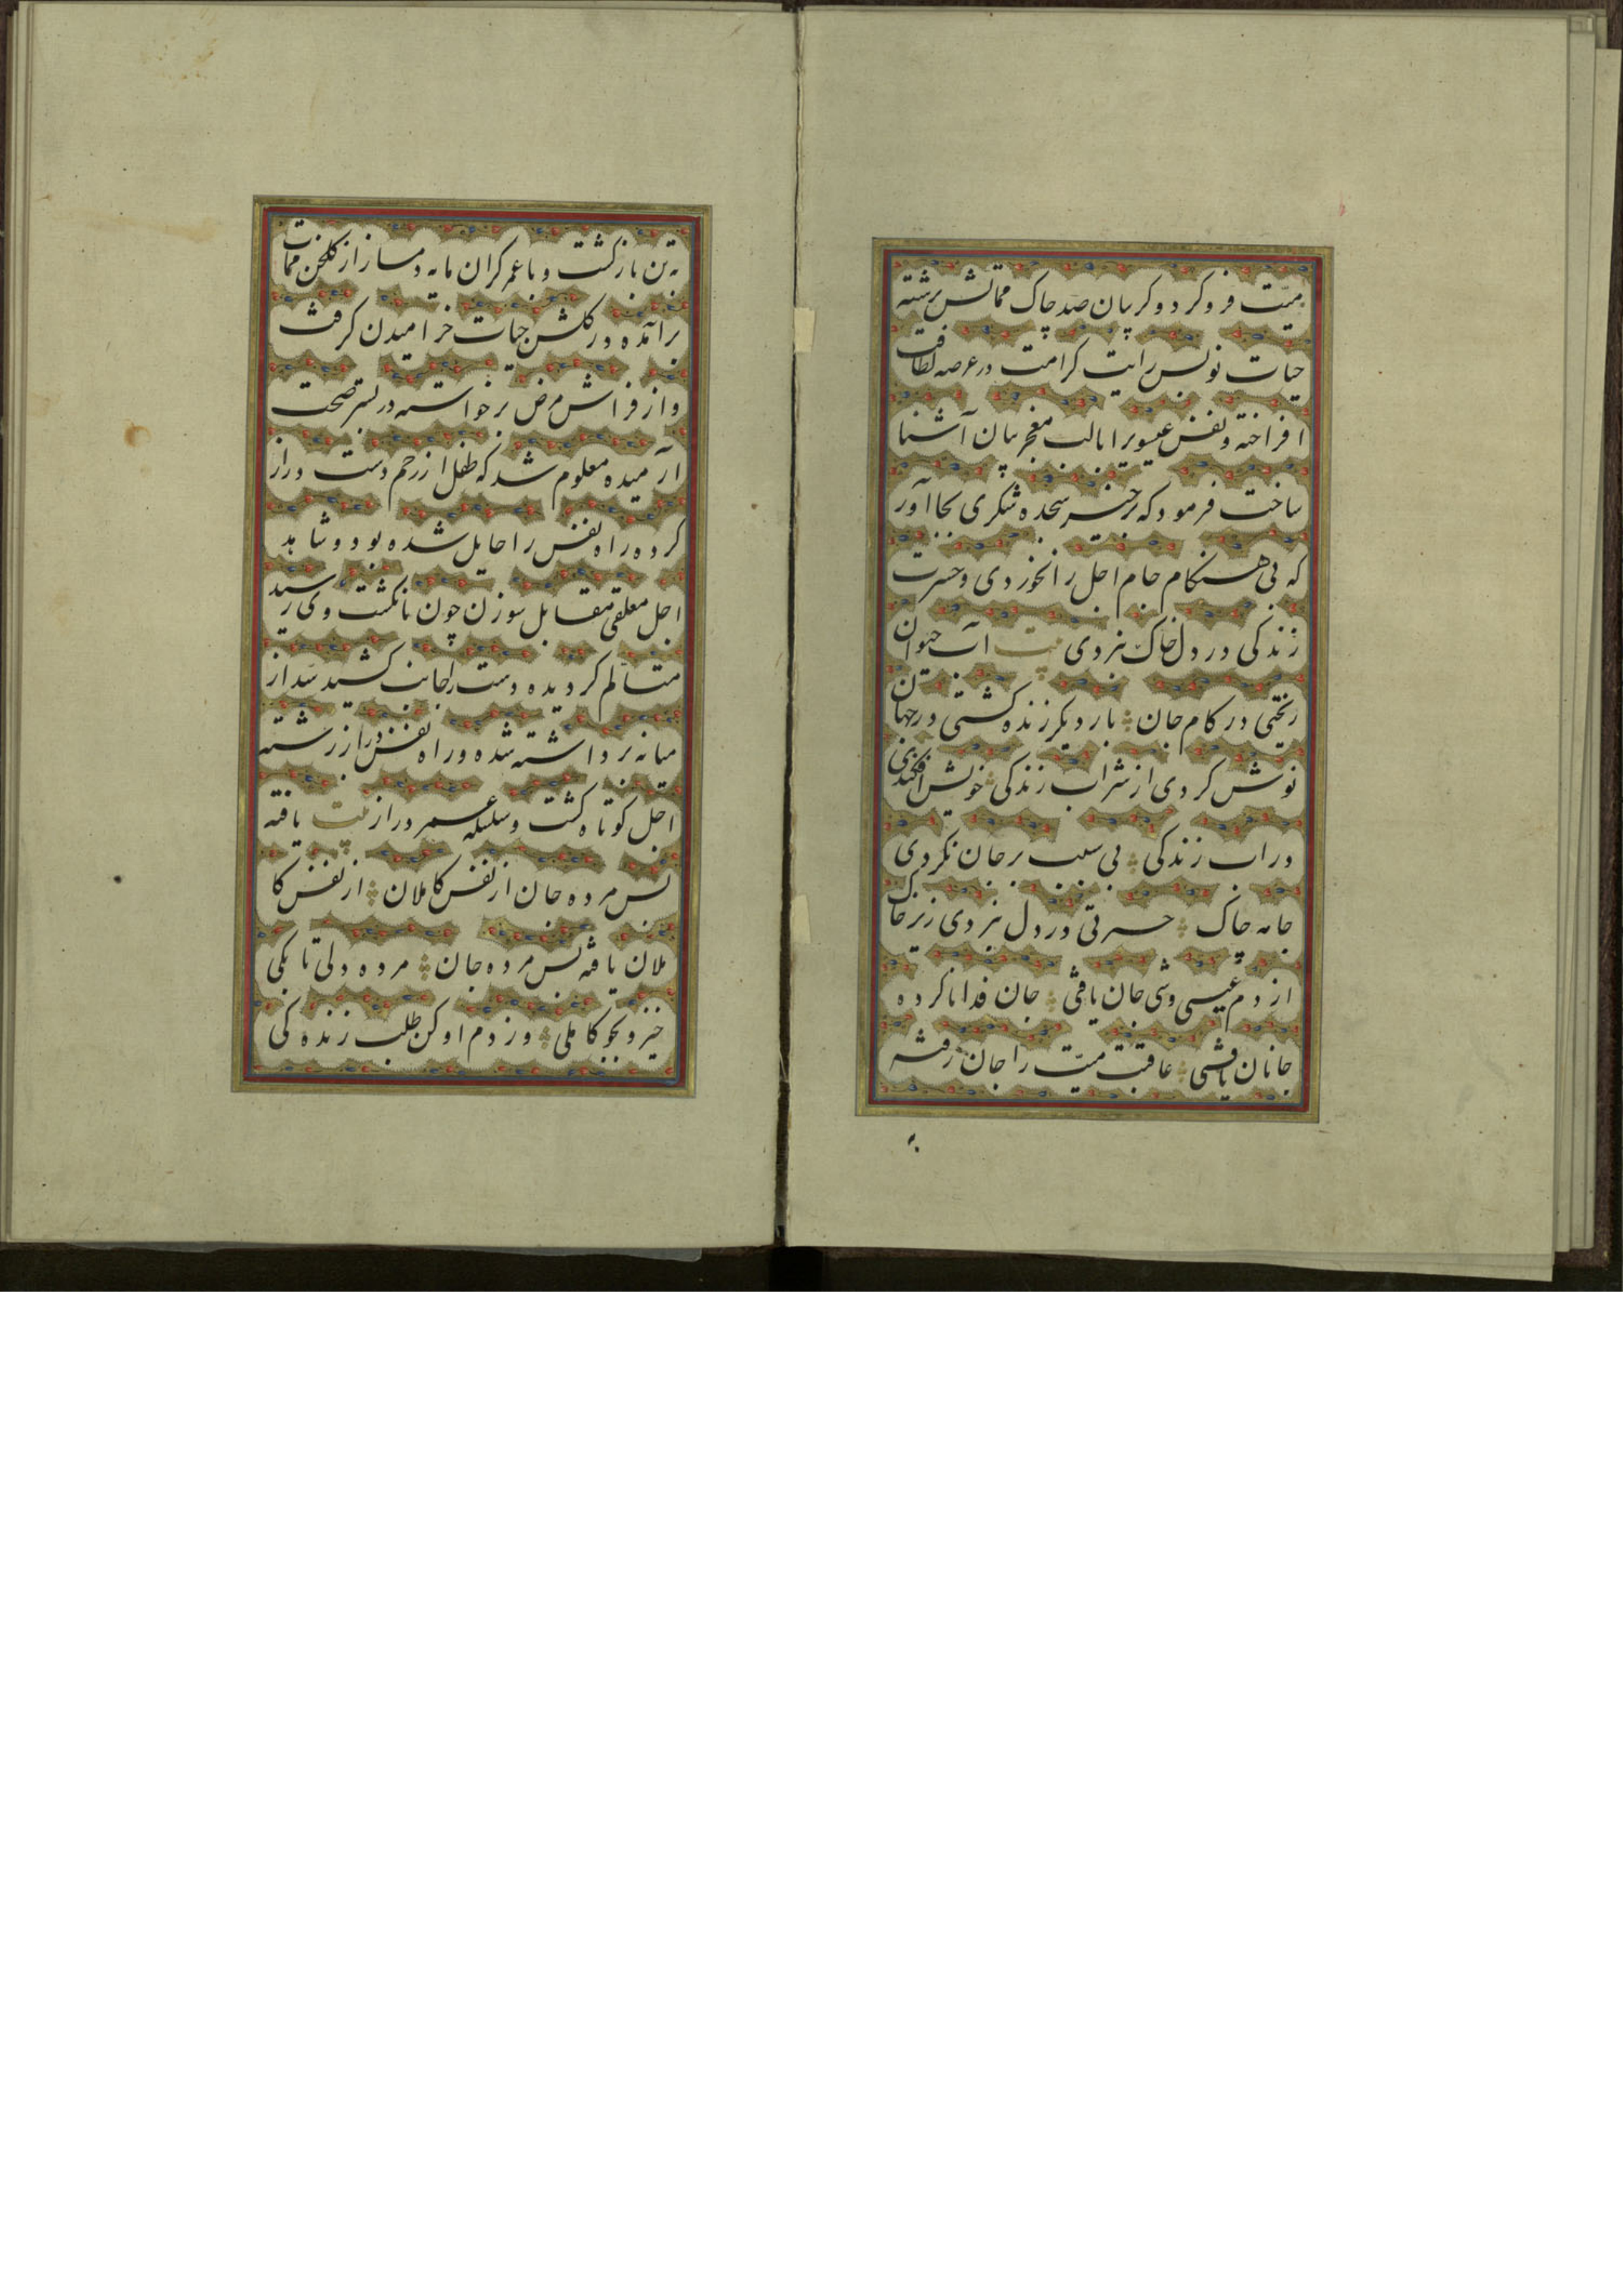 میّت فرو کرد و کریبان صد چاک مماتش برشته
حیات نو پس رایت کرامت در عرصه لطافت
افراخته و نفس عیسویرا بالب معجز بیان آشنا
ساخت فرمود که برخیز سجده شکری بجا آور
که بی هنکام جام اجل را نخوردی و حسرت
زندکی در دل خاک نبردی بیت آب حیوان
ریختی در کام جان بار دیکر زنده کشتی در جهان
نوش کردی از شراب زندکی خوش افکندی
در آب زندکی بی سبب بر جان نکردی
جامه چاک حسرتی در دل نبردی زیر خاک
از دم عیسی وشی جان یافتی جان فدا نا کرده
جانان یافتی عاقبت میّت را جان رفته
به
به تن باز کشت و با عمر کران مایه دمساز از کلخن ممات
برآمده و در کلشن حیات خرامیدن کرفت
و از فراش مرض برخواسته در بستر صحت
آرمیده معلوم شد که طفل از رحم دست دراز
کرده راه نفس را حایل شده بود و شاهد
اجل معلقی مقابل سوزن چون بانکشت وی رسید
متألم کردیده دست را بجانب کشید سد از
میانه برداشته شده و راه نفس دراز رشته
اجل کوتاه کشت و سلسله عمر دراز بیت یافته
بس مرده جان از نفس کاملان از نفس کا
ملان یافته بس مرده جان مرده دلی تا بکی
خیز و بجو کاملی و ز دم او کن طلب زنده کی